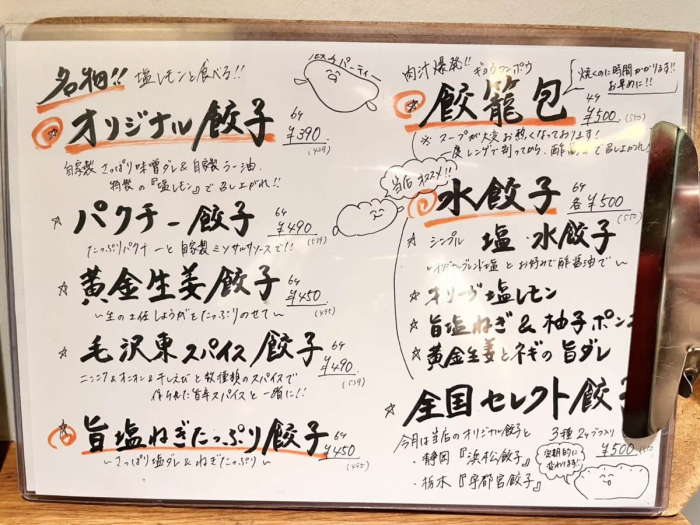 名物!! 塩レモンと食べる!!
オリジナル餃子 6ケ ¥390 (429)
自家製 さっぱり味噌ダレ&自家製ラー油、
特製の『塩レモン』で召し上がれ!!
☆ パクチー餃子 6ケ ¥490 (539)
たっぷりパクチーと自家製ミンサルサソースで!!
☆ 黄金生姜餃子 6ケ ¥450 (495)
～生の土佐しょうがをたっぷりのせて～
☆ 毛沢東スパイス餃子 6ケ ¥490 (539)
ニンニク&オニオン&干しえびと数種類のスパイスで
作られた旨辛スパイスと一緒に!!
旨塩ねぎたっぷり餃子 6ケ ¥450 (495)
～さっぱり塩ダレ&ねぎたっぷり～
パーティー
肉汁爆発!! ギョウロンポウ
焼くのに時間がかかります!!
お早めに!!
餃籠包 4ケ ¥500 (550)
※ スープが大変お熱くなっております!
一度レンゲで割ってから、酢 で召し上がれ!
当店オススメ!!
水餃子 6ケ 各¥500 (550)
☆ シンプル 塩・水餃子
ブレンド塩とお好みで酢醤油で～
☆ オリーブ塩レモン
☆ 旨塩ねぎ&柚子ポン
☆ 黄金生姜とネギの旨ダレ
☆ 全国セレクト餃子
今月は当店のオリジナル餃子と 3種 2ケづつ入り
・静岡『浜松餃子』 ¥500 (550)
・栃木『宇都宮餃子』
定期的に
変わります!!